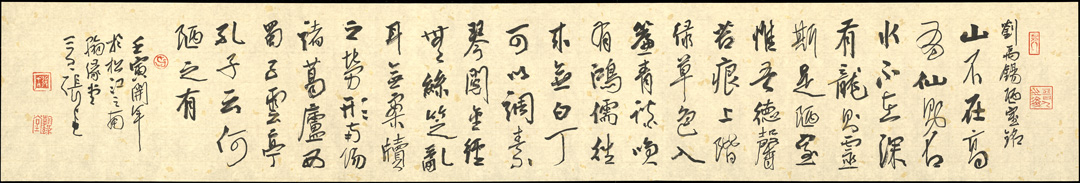 劉禹錫陋室銘
山不在高
有仙則名
水不在深
有龍則靈
斯是陋室
惟吾德馨
苔痕上階
綠草色入
簾青談笑
有鴻儒往
來無白丁
可以調素
琴閱金經
無絲竹亂
耳無案牘
之勞形南陽
諸葛廬西
蜀子雲亭
孔子云何
陋之有
壬寅開年
於松江之南